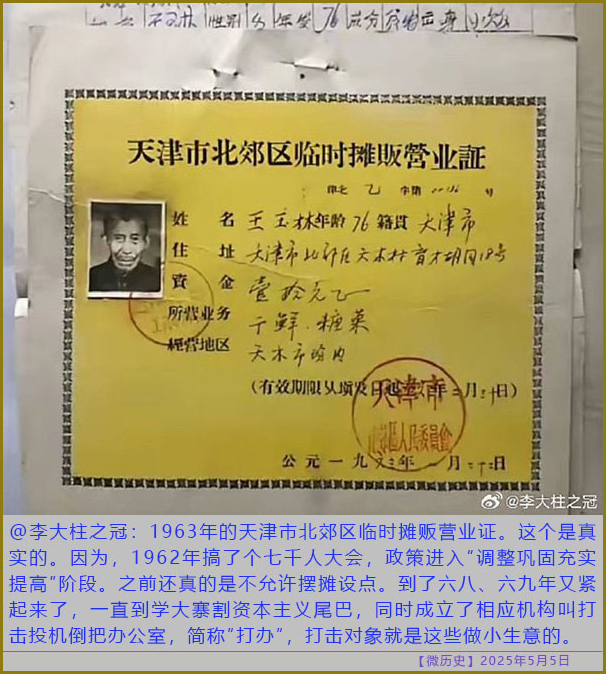 性别 年令 76 成分
天津市北郊区临时摊贩营业証
字第 号
姓 名 王玉林 年龄 76 籍贯 天津市
住 址 天津市北郊区天木村育才胡同18号
資 金 壹拾元
所营业务 干鲜.糖菓
经营地区 天木市場内
(有效期限从颁发日起 年 月 日)
天津市
北郊区人民委員会
公元一九六三年 月 二十日
@李大柱之冠
@李大柱之冠：1963年的天津市北郊区临时摊贩营业证。这个是真
实的。因为，1962年搞了个七千人大会，政策进入"调整巩固充实
提高"阶段。之前还真的是不允许摆摊设点。到了六八、六九年又紧
起来了，一直到学大寨割资本主义尾巴，同时成立了相应机构叫打
击投机倒把办公室，简称"打办"，打击对象就是这些做小生意的。
【微历史】2025年5月5日